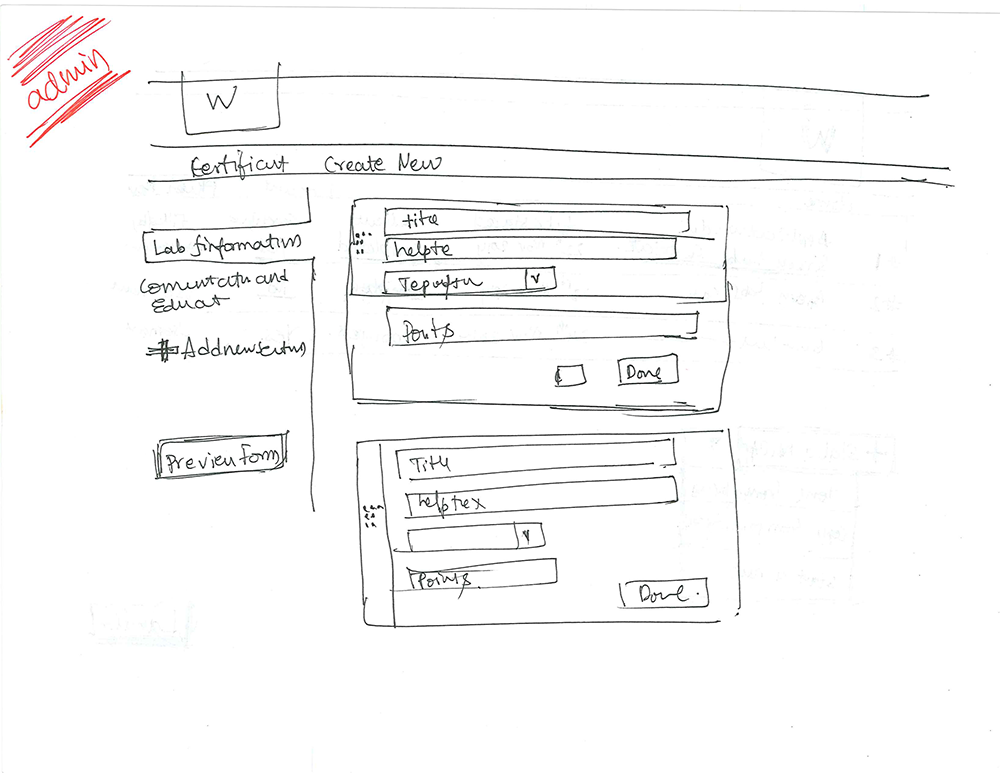 admin
W
Certificat Create New
Lab Information
and
Educat
Add new
Preview Form
title
helpte
v
Points
Done
Title
helptex
v
Points
Done.